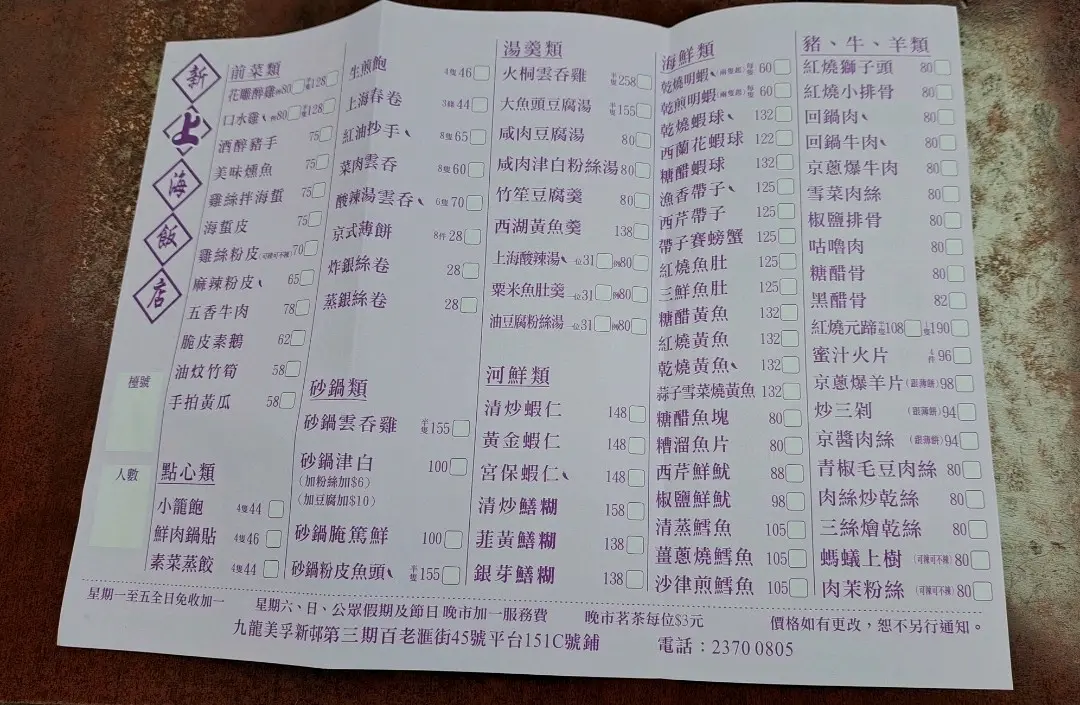 新上海飯店
檯號
人數
前菜類
花雕醉雞 例80 半隻128
口水雞、 例80 半隻128
酒醉豬手 75
美味燻魚 75
雞絲拌海蜇 75
海蜇皮 75
雞絲粉皮(可辣可不辣) 70
麻辣粉皮、 65
五香牛肉 78
脆皮素鵝 62
油炆竹筍 58
手拍黃瓜 58
點心類
小籠飽 4隻44
鮮肉鍋貼 4隻46
素菜蒸餃 4隻44
生煎飽 4隻46
上海春卷 3條44
紅油抄手、 8隻65
菜肉雲吞 8隻60
酸辣湯雲吞、 6隻70
京式薄餅 8件28
炸銀絲卷 28
蒸銀絲卷 28
砂鍋類
砂鍋雲吞雞 半隻155
砂鍋津白 100
(加粉絲加$6)
(加豆腐加$10)
砂鍋腌篤鮮 100
砂鍋粉皮魚頭、 半隻155
湯羹類
火桐雲吞雞 半隻258
大魚頭豆腐湯 半隻155
咸肉豆腐湯 80
咸肉津白粉絲湯 80
竹笙豆腐羹 80
西湖黃魚羹 138
上海酸辣湯、 一位31 例80
粟米魚肚羹 一位31 例80
油豆腐粉絲湯 一位31 例80
河鮮類
清炒蝦仁 148
黃金蝦仁 148
宮保蝦仁、 148
清炒鱔糊 158
韮黃鱔糊 138
銀芽鱔糊 138
海鮮類
乾燒明蝦、(兩隻起) 每隻60
乾煎明蝦(兩隻起) 每隻60
乾燒蝦球、 132
西蘭花蝦球 122
糖醋蝦球 132
漁香帶子、 125
西芹帶子 125
帶子賽螃蟹 125
紅燒魚肚 125
三鮮魚肚 125
糖醋黃魚 132
紅燒黃魚 132
乾燒黃魚、 132
蒜子雪菜燒黃魚 132
糖醋魚塊 80
糟溜魚片 80
西芹鮮魷 88
椒鹽鮮魷 98
清蒸鱈魚 105
薑蔥燒鱈魚 105
沙律煎鱈魚 105
豬、牛、羊類
紅燒獅子頭 80
紅燒小排骨 80
回鍋肉、 80
回鍋牛肉、 80
京蔥爆牛肉 80
雪菜肉絲 80
椒鹽排骨 80
咕嚕肉 80
糖醋骨 80
黑醋骨 82
紅燒元蹄 半隻108 1隻190
蜜汁火片 4件96
京蔥爆羊片(跟薄餅) 98
炒三剁 (跟薄餅) 94
京醬肉絲 (跟薄餅) 94
青椒毛豆肉絲 80
肉絲炒乾絲 80
三絲燴乾絲 80
螞蟻上樹 (可辣可不辣) 80
肉茉粉絲 (可辣可不辣) 80
星期一至五全日免收加一 星期六、日、公眾假期及節日 晚市加一服務費 晚市茗茶每位$3元 價格如有更改，恕不另行通知。
九龍美孚新邨第三期百老滙街45號平台151C號鋪 電話：2370 0805